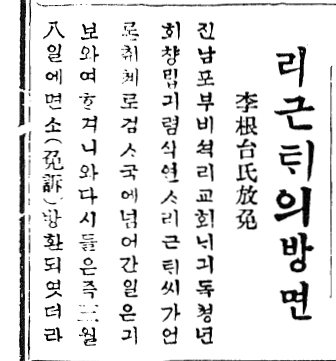 리근ᄐᆡ의방면
李根台氏放免
진남포부비석리교회ᄂᆡ긔독청년
회챵립긔렴식연ᄉᆞ리근ᄐᆡ씨가언
론취체로검ᄉᆞ국에넘어간일은긔
보와여ᄒᆞ겨니와다시들은즉三월
八일에면소(免訴)방환되엿더라